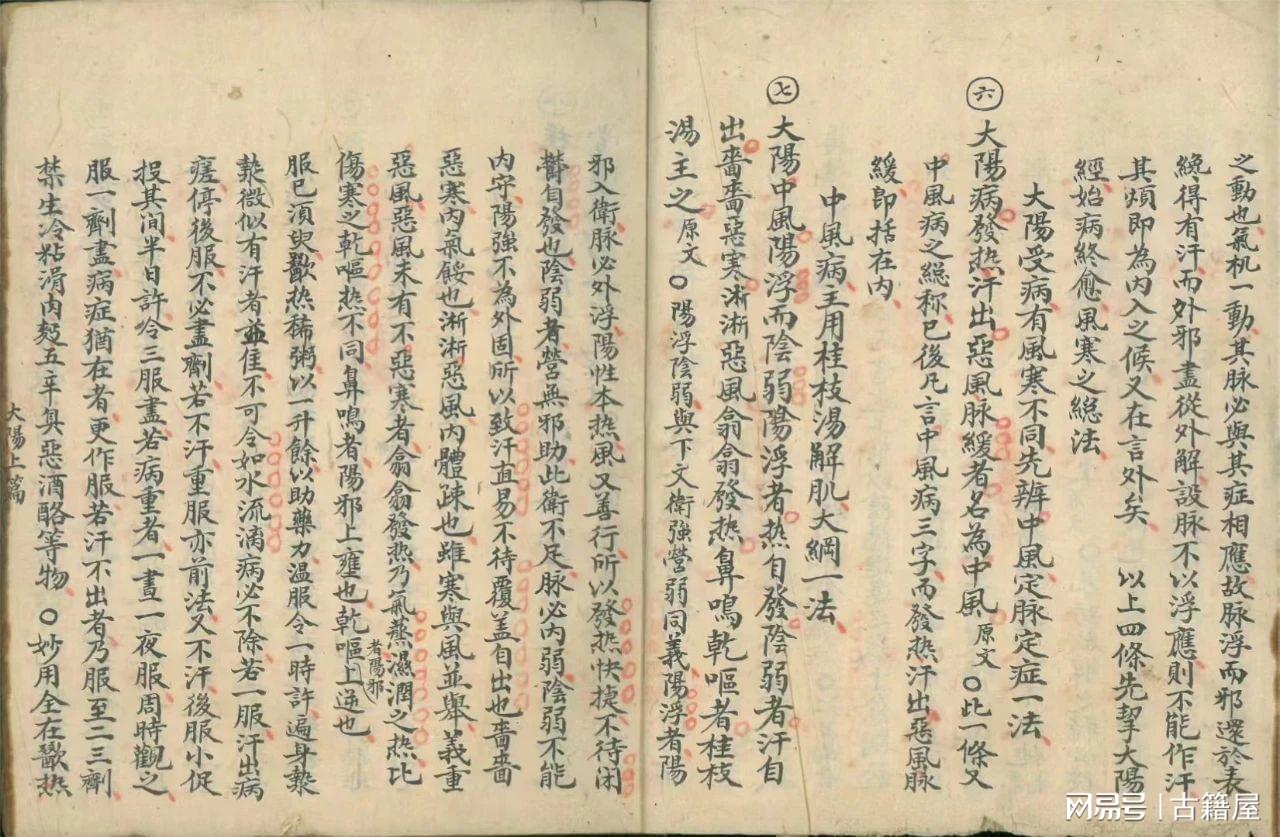 之動也氣机一動其脉必與其症相應故脉浮而邪還於表
纔得有汗而外邪盡從外解設脉不以浮應則不能作汗
其煩即為內入之候又在言外矣 以上四條先挈大陽
經始病終愈風寒之総法
大陽受病有風寒不同先辨中風定脉定症一法
六 大陽病發热汗出惡風脉緩者名為中風原文○此一條又
中風病之総称已後凡言中風病三字而發热汗出惡風脉
緩即括在内
中風病主用桂枝湯解肌大綱一法
七 大陽中風陽浮而陰弱陽浮者热自發陰弱者汗自
出嗇嗇惡寒淅淅惡風翕翕發热鼻鳴乾嘔者桂枝
湯主之原文○陽浮陰弱與下文衛強營弱同義陽浮者陽
邪入衛脉必外浮陽性本热風又善行所以發热快捷不待闭
欝自發也陰弱者營無邪助此衛不足脉必内弱陰弱不能
内守陽強不為外固所以致汗直易不待覆盖自出也嗇嗇
惡寒内氣餒也淅淅惡風内體疎也雖寒與風並舉義重
惡風惡風未有不惡寒者翕翕發热乃氣蒸濕潤之热比
傷寒之乾嘔热不同鼻鳴者陽邪上壅也乾嘔者陽邪上逆也
服已湏臾歠热稀粥以一升餘以助藥力温服令一時許遍身漐
漐微似有汗者並佳不可令如水流漓病必不除若一服汗出病
瘥停後服不必盡劑若不汗重服亦前法又不汗後服小促
投其间半日許令三服盡若病重者一晝一夜服周時觀之
服一劑盡病症猶在者更作服若汗不出者乃服至二三劑
禁生冷粘滑肉麫五辛臭惡酒酪等物 ○妙用全在歠热
大陽上篇
网易号 | 古籍屋